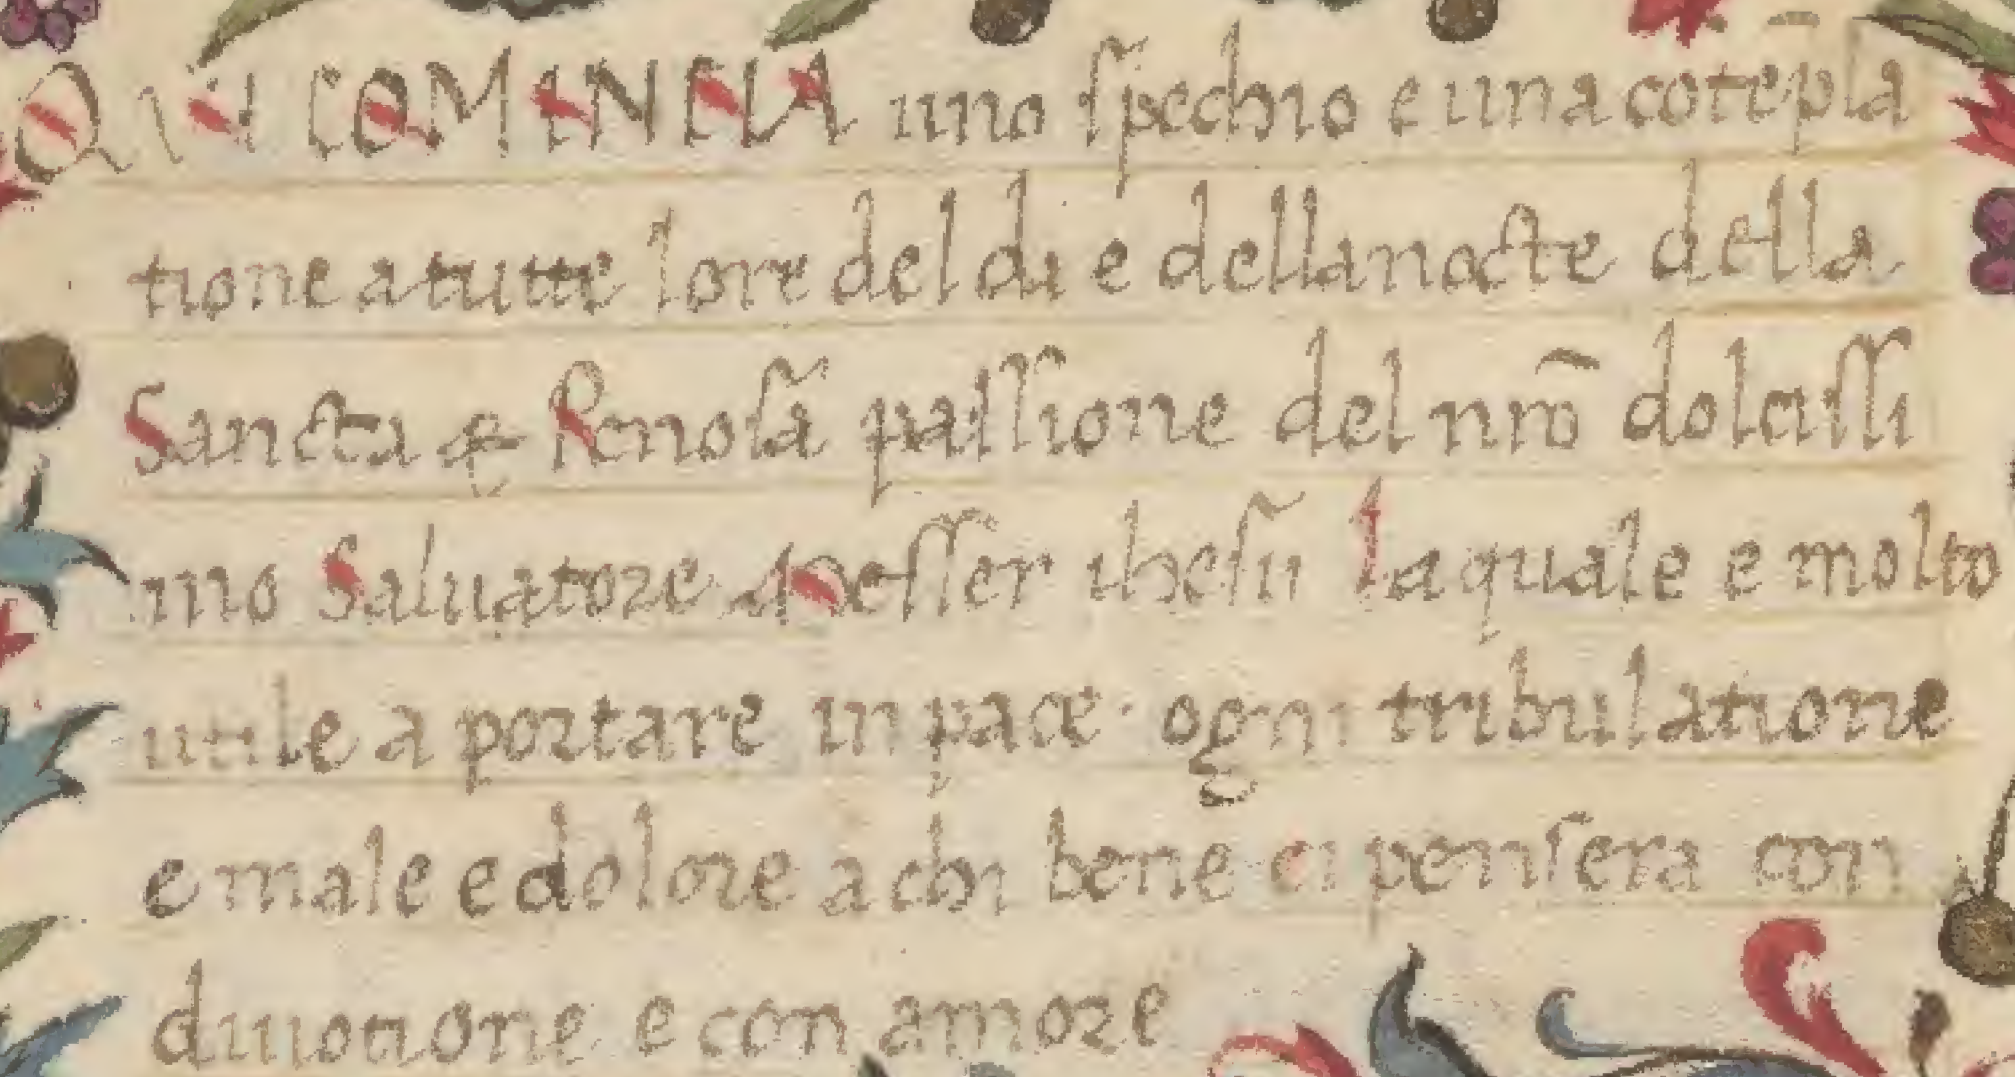 QUI COMINCIA uno ſpechio e una cōtēpla
tione a tutte lore del di e della nocte della
Sancta & Penoſa paſſione del nrō dolciſſi
mo Saluatore Meſſer iheſu laquale e molto
utile a portare in pace · ogni tribulatione
e male e dolore a chi bene ci penſera con
diuotione e con amore